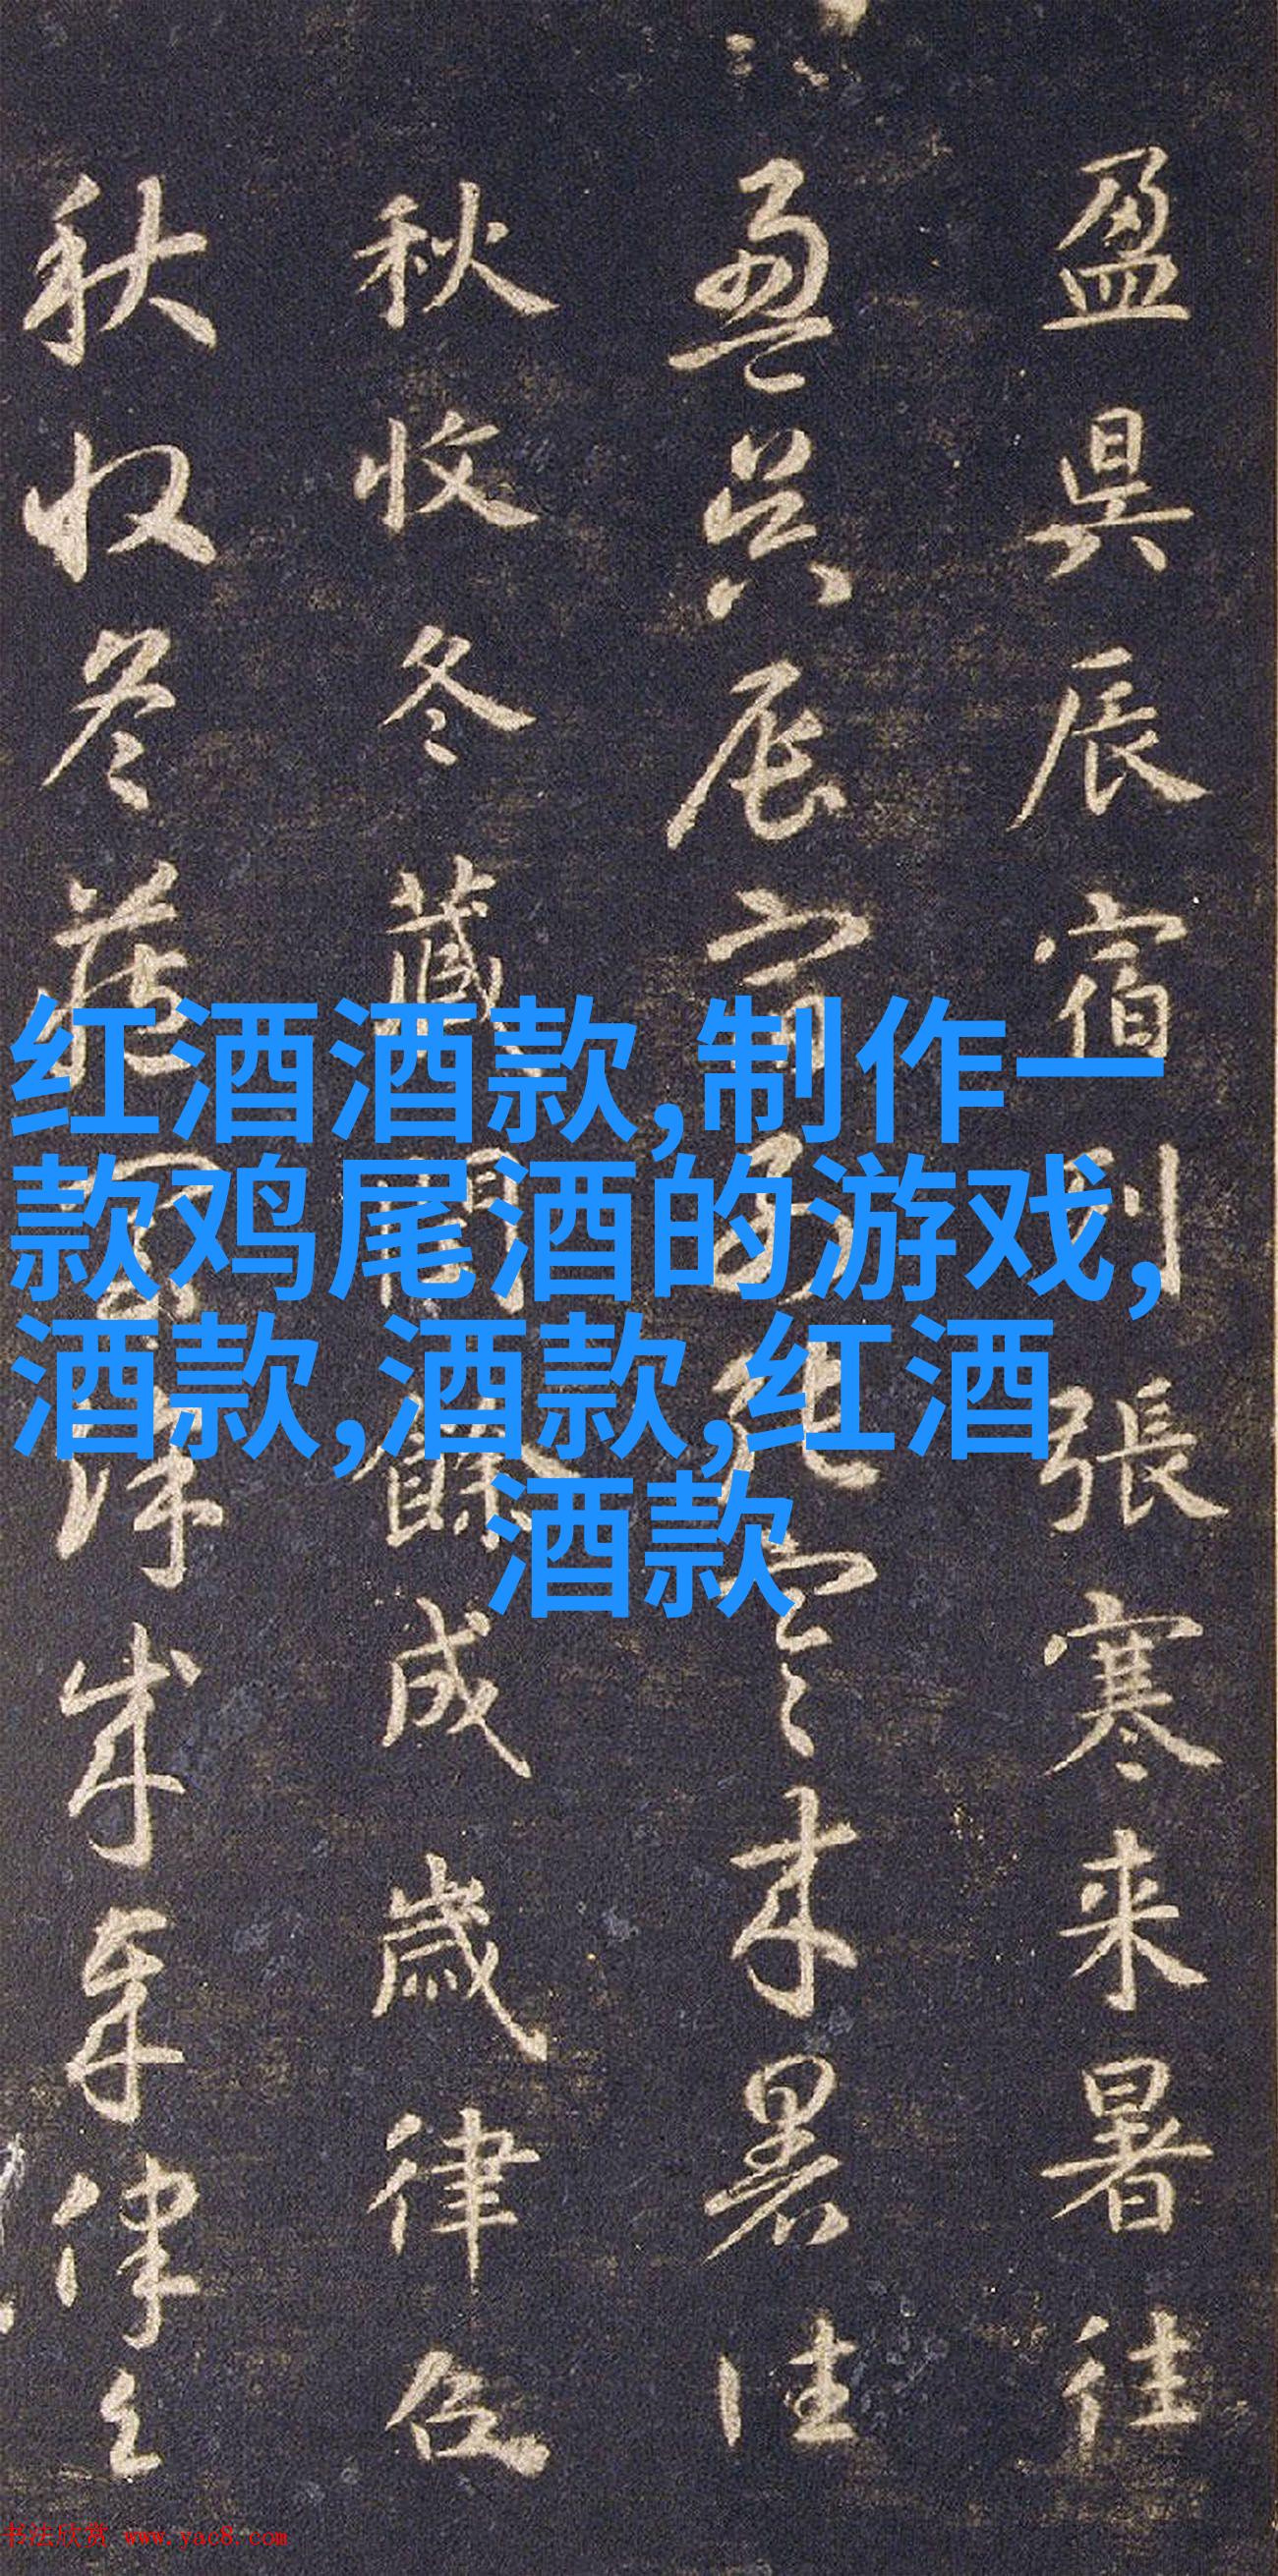 盈昃辰宿列張寒来暑往
盈昃辰宿列張寒来暑往
秋收冬藏閏餘成歲律召
秋收冬藏閏餘成歲律召
红酒酒款,制作一
款鸡尾酒的游戏,
酒款,酒款,红酒
酒款
书法欣赏 www.yac8.com